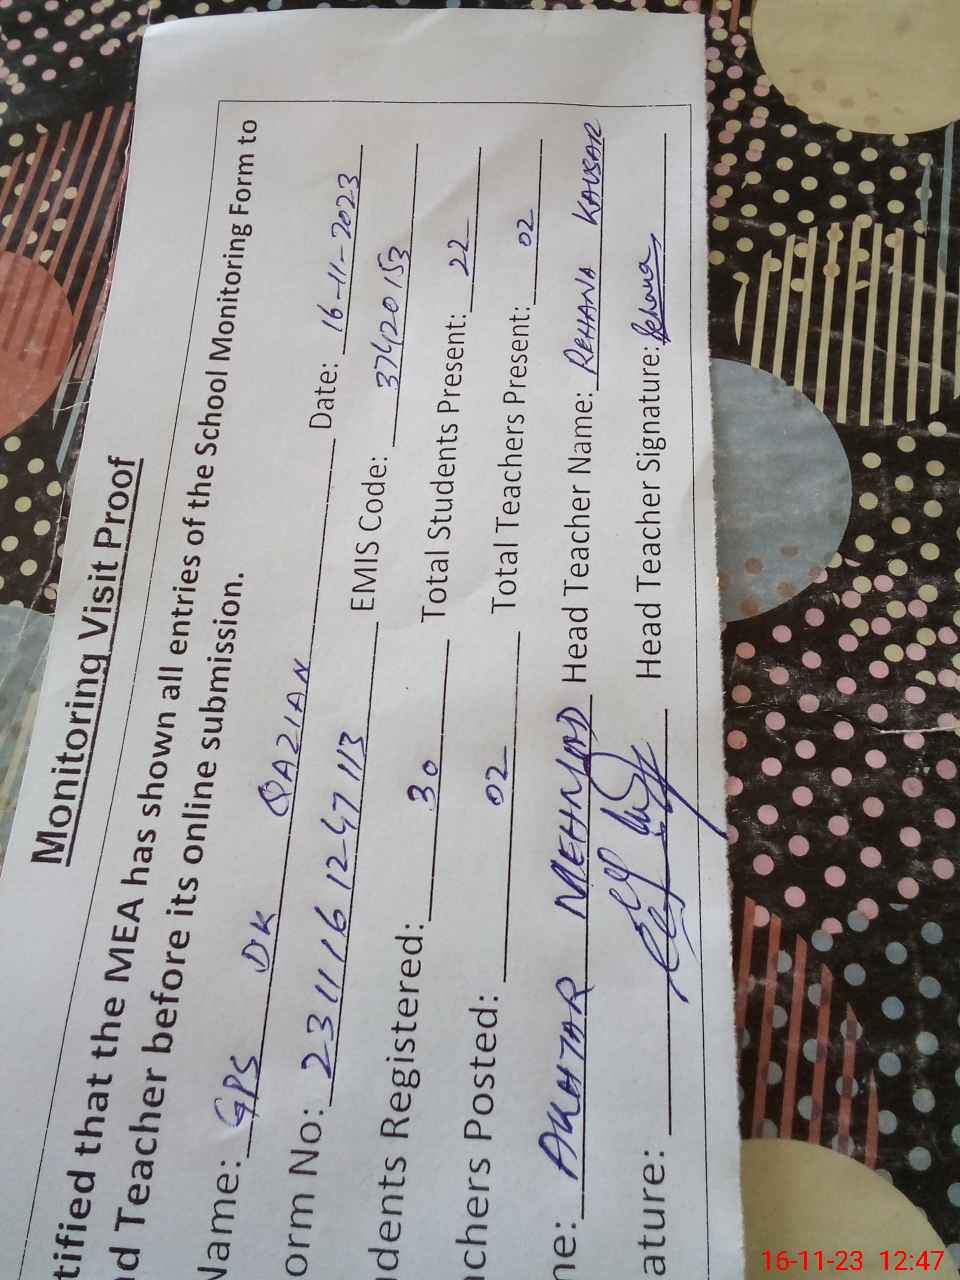 Monitoring Visit Proof
tified that the MEA has shown all entries of the School Monitoring Form to
d Teacher before its online submission.
Name: GPS DK QAZIAN Date: 16-11-2023
orm No: 231116124713 EMIS Code: 37420153
dents Registered: 30 Total Students Present: 22
chers Posted: 02 Total Teachers Present: 02
me: AKHTAR MEHMOOD Head Teacher Name: REHANA KAUSAR
ature: Head Teacher Signature: Rehana
16-11-23 12:47